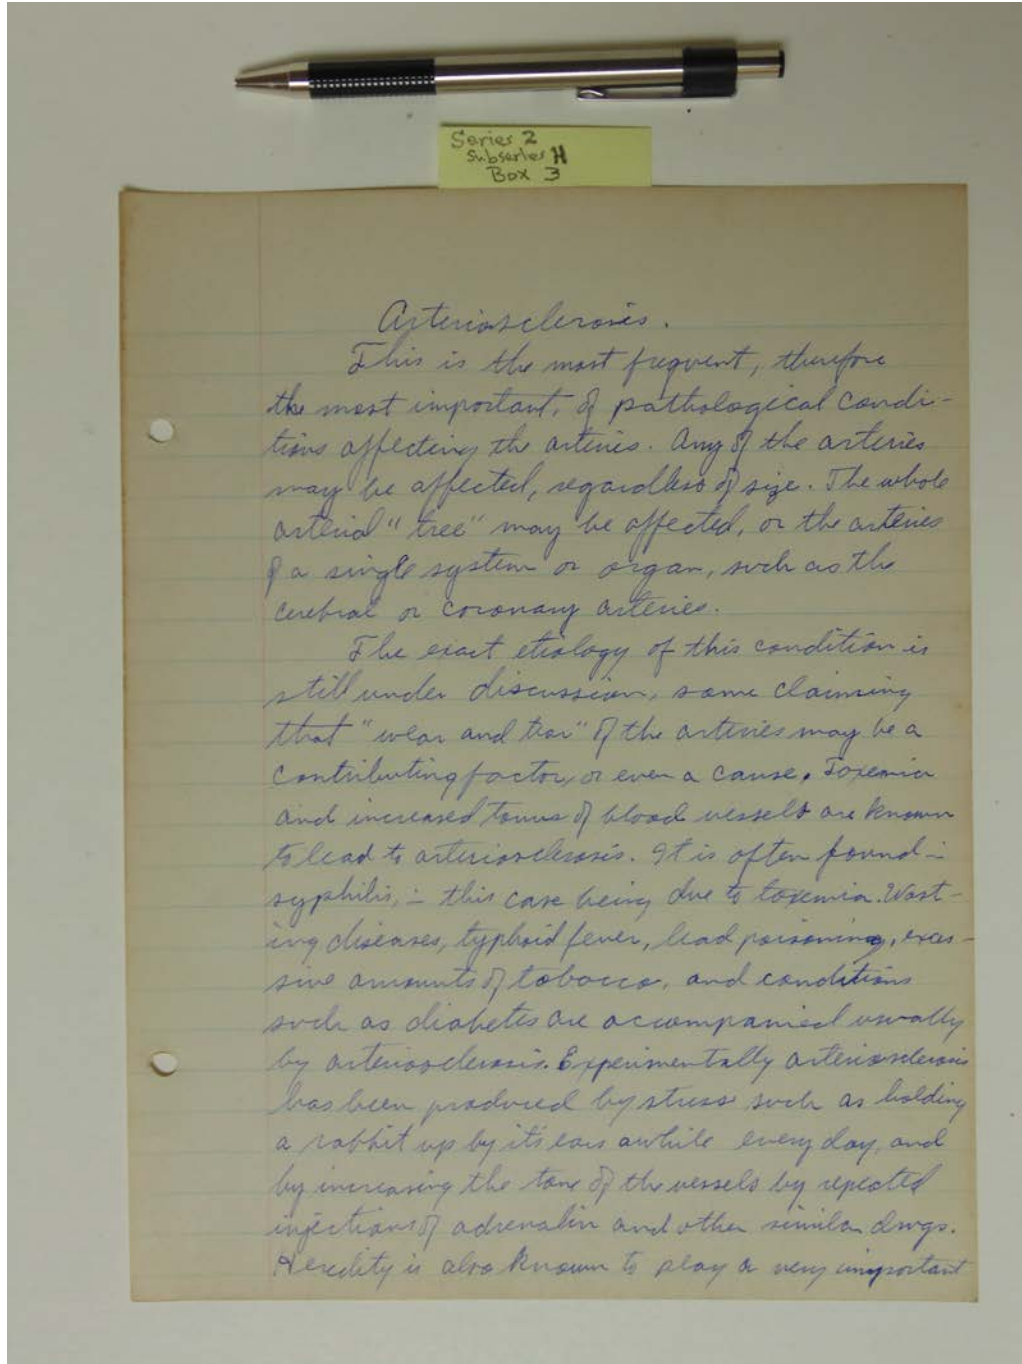 Series 2
Subseries H
Box 3
Arteriosclerosis.
This is the most frequent, therefore
the most important, of pathological condi-
tions affecting the arteries. Any of the arteries
may be affected, regardless of size. The whole
arterial "tree" may be affected, or the arteries
of a single system or organ, such as the
cerebral or coronary arteries.
The exact etiology of this condition is
still under discussion, some claiming
that "wear and tear" of the arteries may be a
contributing factor, or even a cause. Toxemia
and increased tonus of blood vessels are known
to lead to arteriosclerosis. It is often found
syphilis, this case being due to toxemia. Wast-
ing diseases, typhoid fever, lead poisoning, exces-
sive amounts of tobacco, and conditions
such as diabetes are accompanied usually
by arteriosclerosis. Experimentally arteriosclerosis
has been produced by stress such as holding
a rabbit up by it's ears awhile every day, and
by increasing the tone of the vessels by repeated
injections of adrenalin and other similar drugs.
Heredity is also known to play a very important